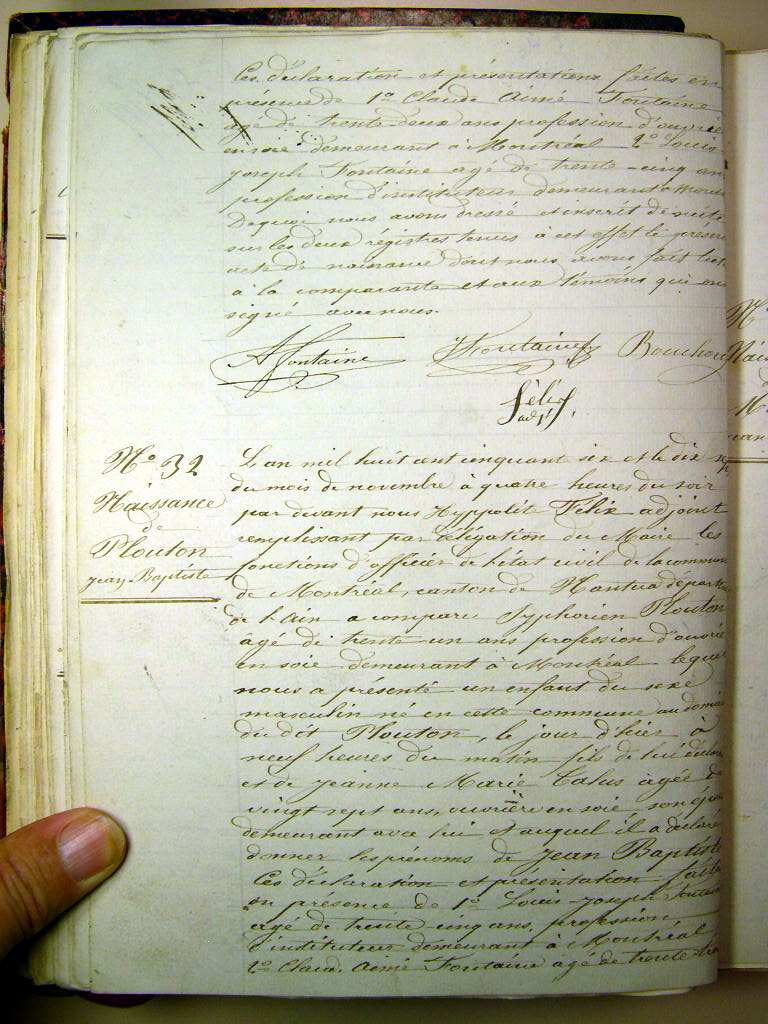 Ces déclaration et présentations faites en
présence de 1º Claude Aimé Fontaine
agé de trente deux ans profession d'ouvrier
en soie demeurant à Montréal 2º Louis
Joseph Fontaine agé de trente-cinq ans
profession d'instituteur demeurant à Montréal
De quoi nous avons dressé et inscrit de suite
sur les deux régistres tenus à cet effet le présent
acte de naissance dont nous avons fait
à la comparante et aux témoins qui ont
signé avec nous.
A Fontaine Fontaine Bouchou
Félix
adjt
Nº 32
Naissance
de
Plouton
Jean-Baptiste
L'an mil huit cent cinquante six et le dix-se
du mois de novembre à quatre heures du soir
par devant nous Hyppolite Félix adjoint
remplissant par délégation du Maire les
fonctions d'officier de l'état civil de la commune
de Montréal, canton de Nantua départ
de l'Ain a comparu Syphorien Plouton
agé de trente un ans profession d'ouvrier
en soie demeurant à Montréal lequel
nous a présenté un enfant du sexe
masculin né en cette commune au domic
du dit Plouton, le jour d'hier à
neuf heures du matin fils de lui
et de Jeanne Marie Talus agée de
vingt sept ans, ouvrière en soie son épou
demeurant avec lui et auquel il a déclaré
donner les prénoms de Jean Baptiste
Ces déclaration et présentation faites
en presence de 1º Louis-Joseph Fontaine
agé de trente cinq ans, profession
d'instituteur demeurant à Montréal
2º Claude Aimé Fontaine agé de trente-